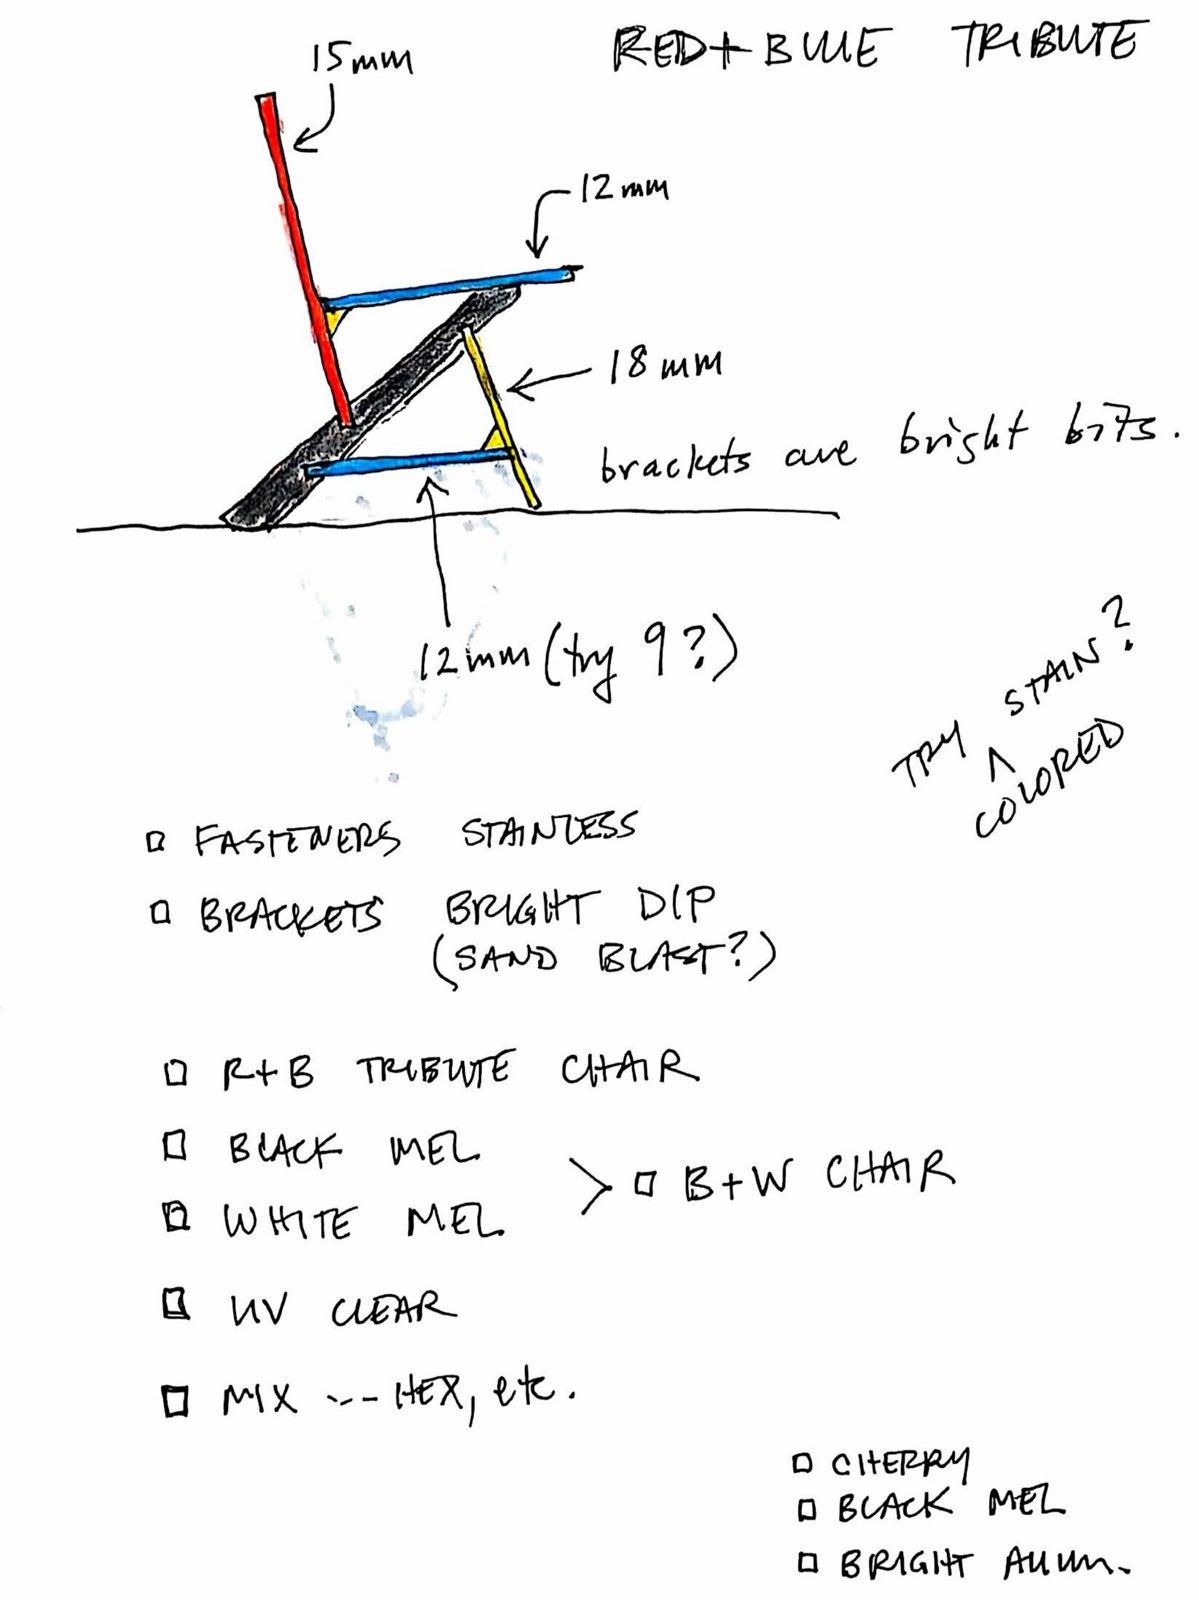 RED+BLUE TRIBUTE
15mm
12mm
18mm
brackets are bright bits.
12mm (try 9?)
TRY ^ STAIN?
COLORED
□ FASTENERS STAINLESS
□ BRACKETS BRIGHT DIP
(SAND BLAST?)
□ R+B TRIBUTE CHAIR
□ BLACK MEL
> □ B+W CHAIR
□ WHITE MEL
□ UV CLEAR
□ MIX --- HEX, etc.
□ CHERRY
□ BLACK MEL
□ BRIGHT ALUM.